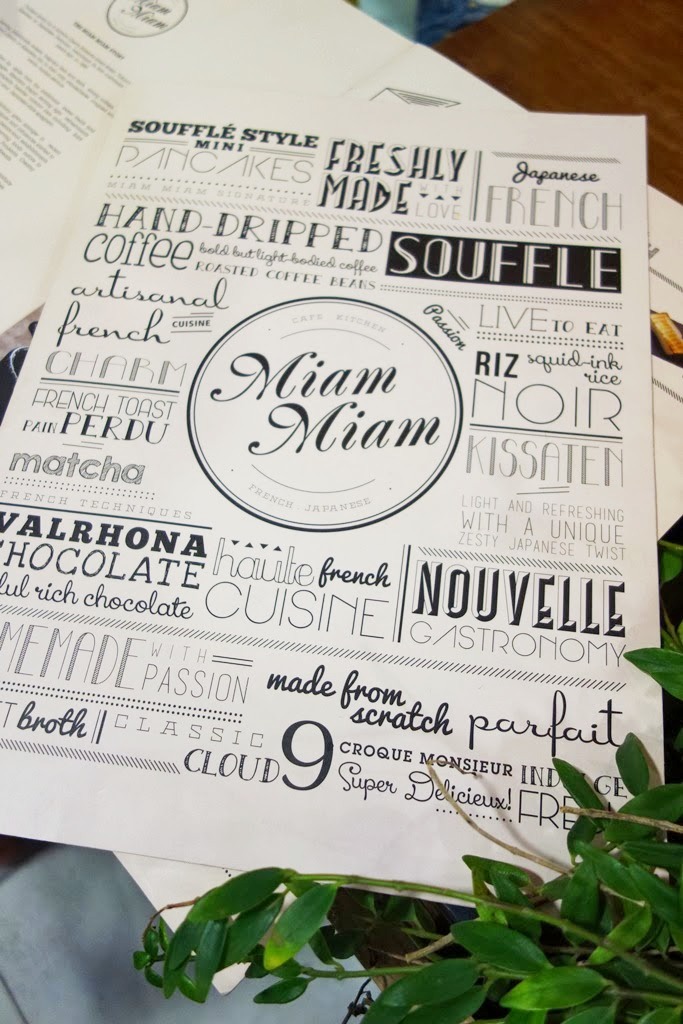 Miam
Miam
THE MIAM MIAM STORY
SOUFFLÉ STYLE
MINI
PANCAKES
MIAM MIAM SIGNATURE
FRESHLY
MADE WITH
LOVE
Japanese
FRENCH
HAND-DRIPPED
coffee bold but light-bodied coffee
ROASTED COFFEE BEANS
SOUFFLE
artisanal
french CUISINE
CHARM
FRENCH TOAST
PAIN PERDU
matcha
FRENCH TECHNIQUES
CAFE KITCHEN
Miam
Miam
FRENCH JAPANESE
Passion
LIVE TO EAT
RIZ squid-ink
rice
NOIR
KISSATEN
LIGHT AND REFRESHING
WITH A UNIQUE
ZESTY JAPANESE TWIST
VALRHONA
CHOCOLATE
rich chocolate
haute french
CUISINE
NOUVELLE
GASTRONOMY
MEMADE WITH
PASSION
made from
scratch
parfait
broth
CLASSIC
CLOUD 9
CROQUE MONSIEUR
Super Delicieux!